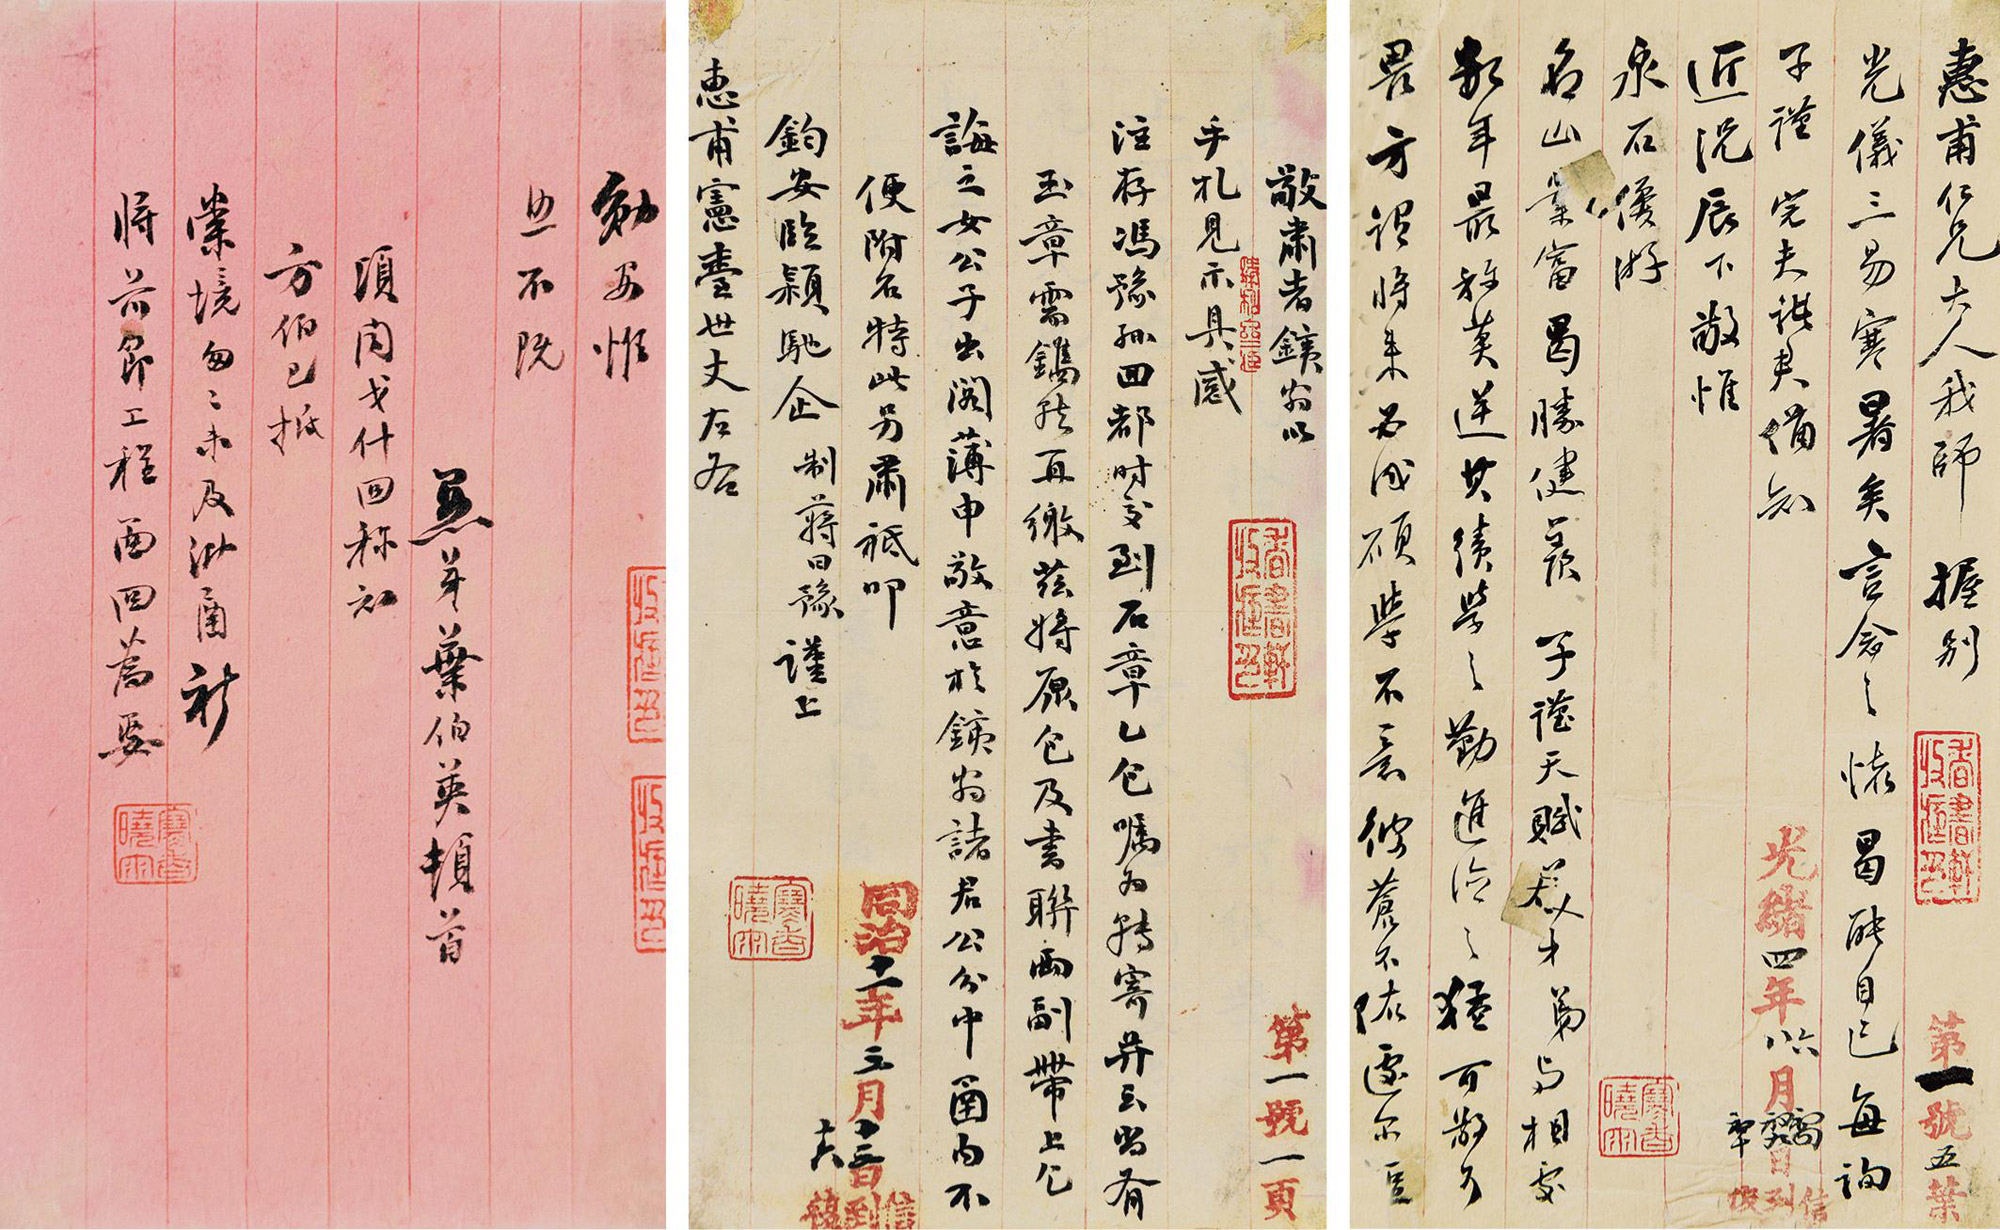 惠甫仁兄大人我師 握別
光儀三易寒暑矣言念之懷曷能自已每詢
子謹 完夫諸君備知
近況辰下敬惟
泉石優游
名山業富曷勝健羨 子謹天賦美才弟與相處
數年最稱莫逆其績學之勤進德之猛可敬可
畏方謂將來必成碩學不意彼蒼不佑遽爾
第一號五葉
光緒四年 月 日
信到
敬肅者鐵翁以
手札見示具感
注存馮豫孫回都時交到石章乙包囑為轉寄并云尚有
玉章需鐫然再繳茲將原包及書聯兩副帶上乞
誨之女公子出閣薄申敬意於鐵翁諸君公分中函內不
便附名特此另肅祗叩
鈞安臨穎馳企 制蔣曰豫謹上
惠甫憲臺世丈左右
第一號一頁
同治十一年三月十三日
信到
勛安惟
照不既
愚弟葉伯英頓首
須閏戈什回稱知
方伯已抵
棠境匆匆未及泐函祈
將前節工程面回為要